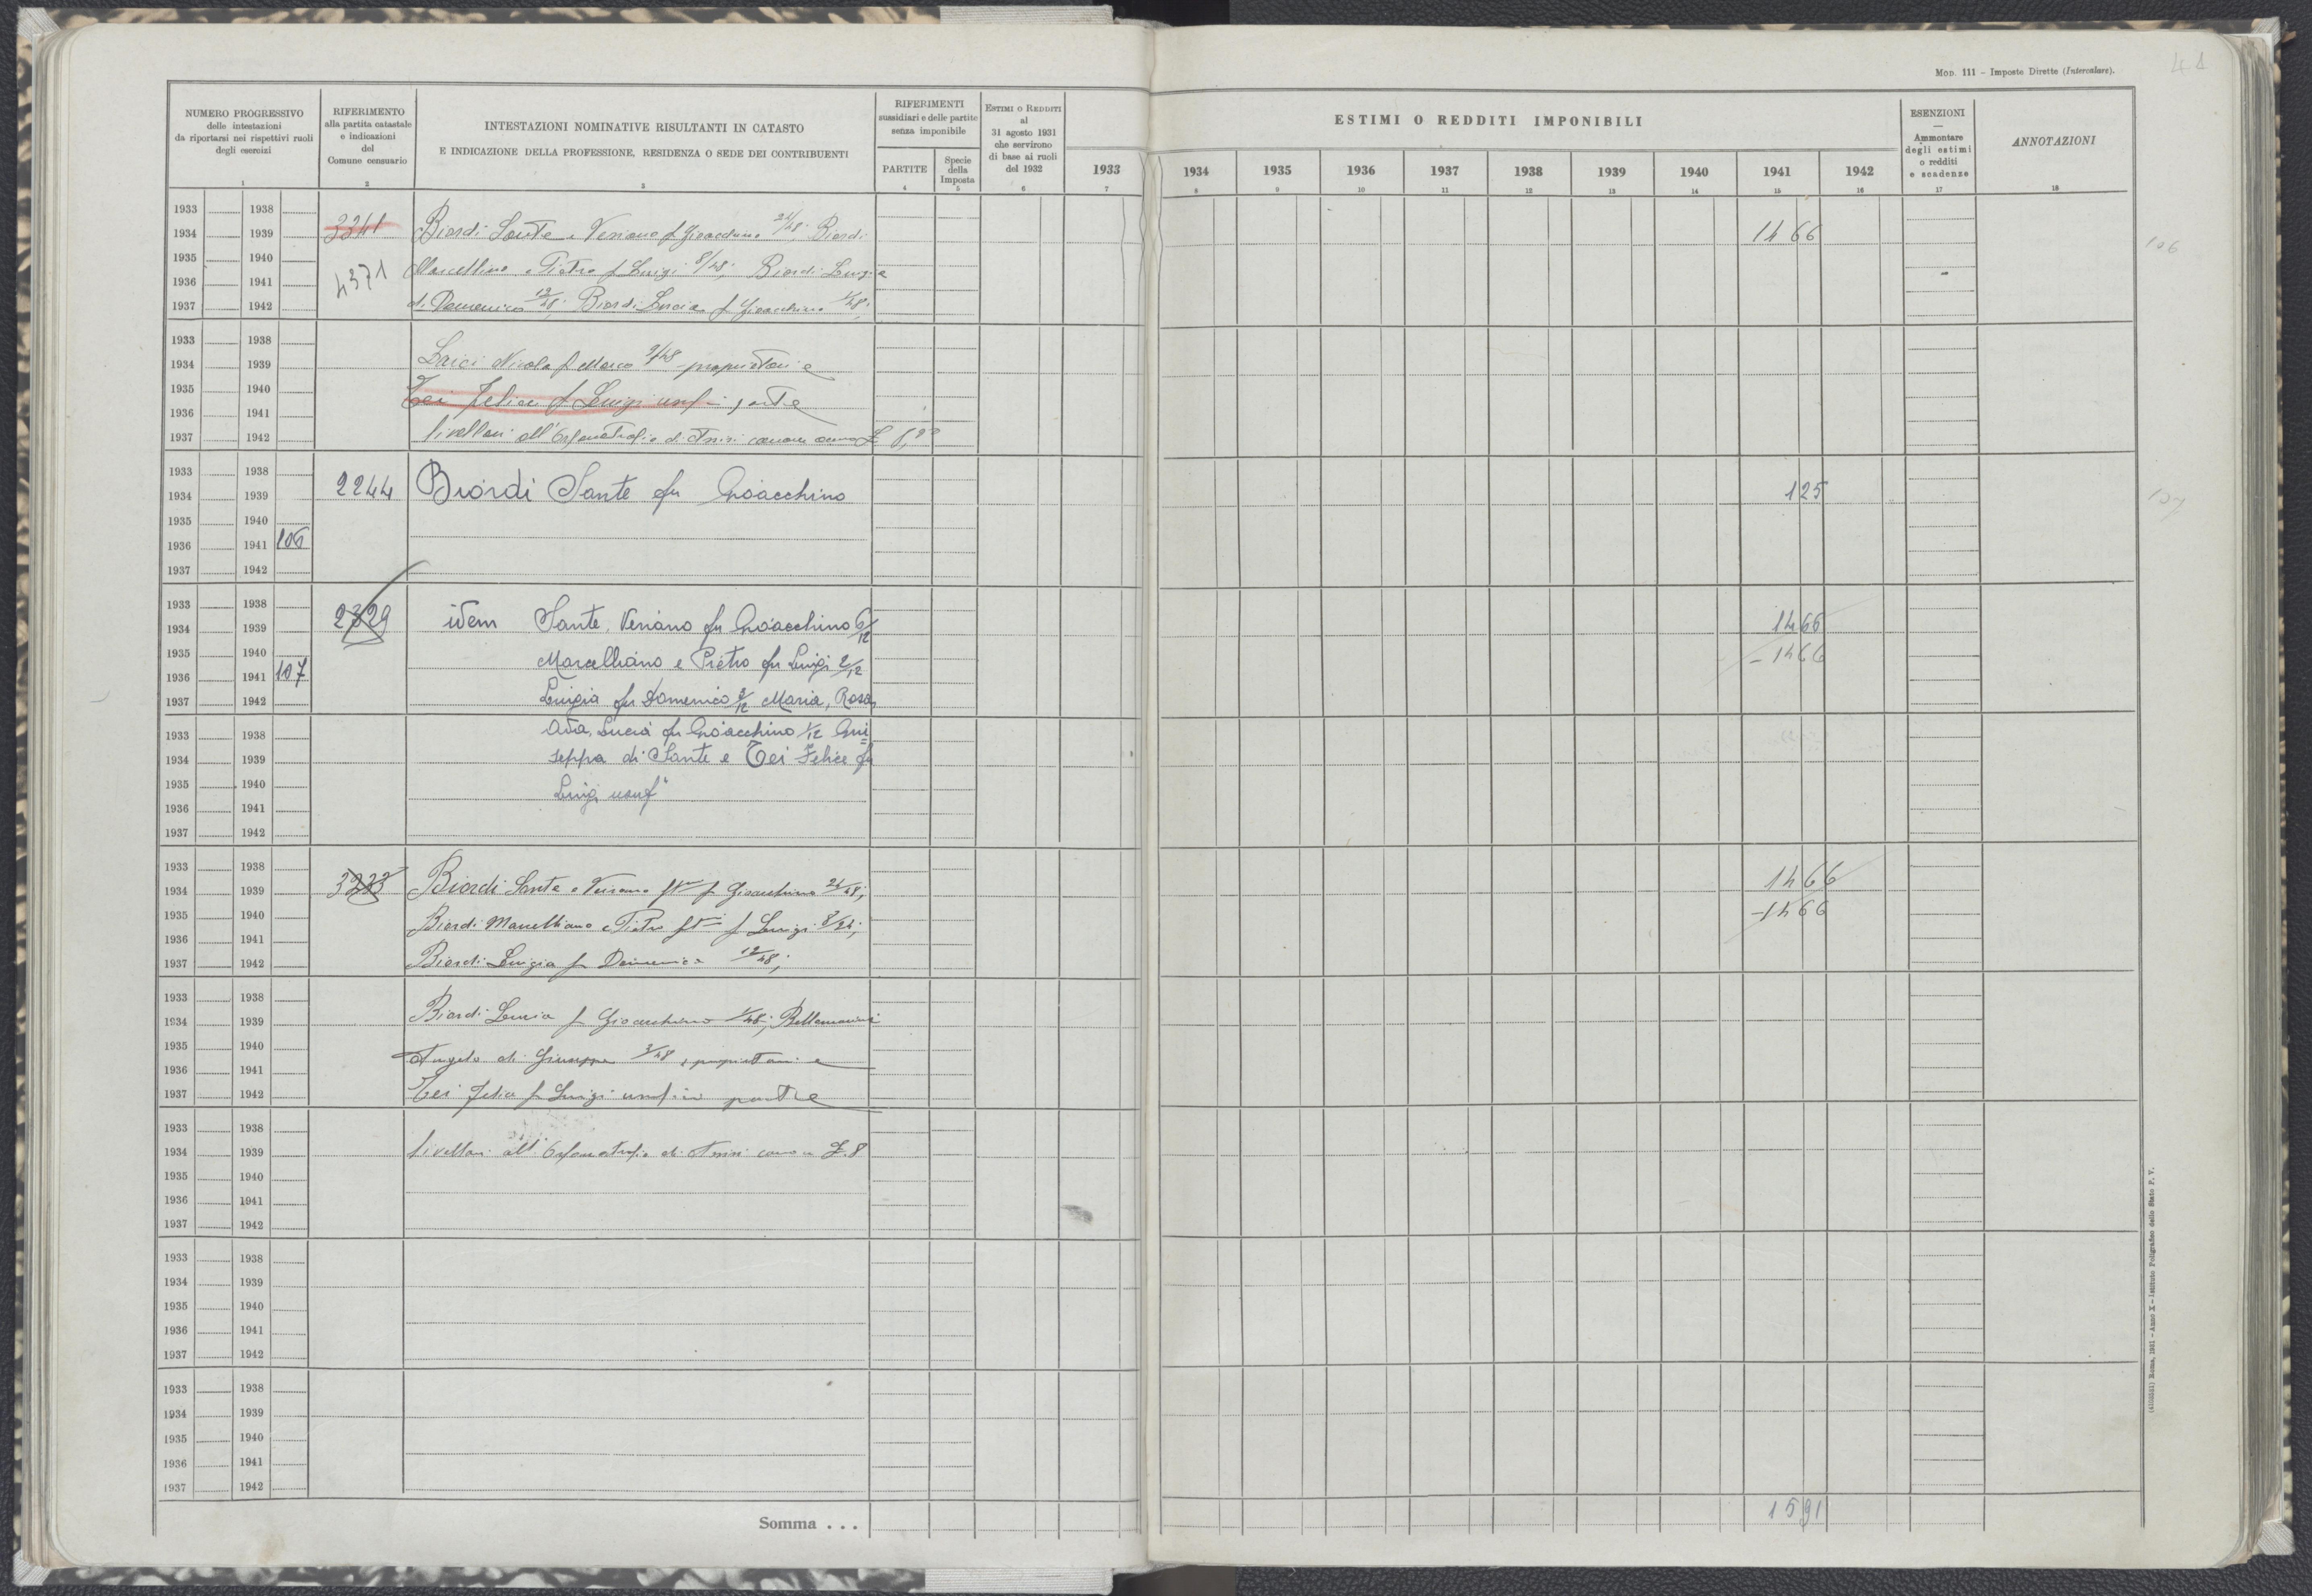 MOD. 111 - Imposte Dirette (Intercalare).
41
NUMERO PROGRESSIVO
delle intestazioni
da riportarsi nei rispettivi ruoli
degli esercizi
1
RIFERIMENTO
alla partita catastale
e indicazioni
del
Comune censuario
2
INTESTAZIONI NOMINATIVE RISULTANTI IN CATASTO
E INDICAZIONE DELLA PROFESSIONE, RESIDENZA O SEDE DEI CONTRIBUENTI
3
RIFERIMENTI
sussidiari e delle partite
senza imponibile
PARTITE
4
Specie
della
Imposta
5
ESTIMI O REDDITI
al
31 agosto 1931
che servirono
di base ai ruoli
del 1932
6
ESTIMI O REDDITI IMPONIBILI
1933 1934 1935 1936 1937 1938 1939 1940 1941 1942
7 8 9 10 11 12 13 14 15 16
ESENZIONI
—
Ammontare
degli estimi
o redditi
e scadenze
17
ANNOTAZIONI
18
1933 1938
1934 1939 3341 Biordi Sante e Veriano f Gioacchino 24/48; Biordi 1466
106
1935 1940 Marcelliano e Pietro f Luigi 8/48; Biordi Luigia
1936 1941 4371
1937 1942 di Domenico 12/48; Biordi Lucia f Gioacchino 1/48;
1933 1938
1934 1939 Nicola f Marco 3/48 proprietari e
1935 1940
1936 1941 Tei Felice f Luigi usuf in parte
1937 1942 livellari all'Orfanotrofio di Assisi canone annuo £
1933 1938
1934 1939 2244 Biordi Sante fu Gioacchino 125
107
1935 1940
1936 1941 106
1937 1942
1933 1938
1934 1939 2329 idem Sante, Veriano fu Gioacchino 6/12 1466
1935 1940 Marcelliano e Pietro fu Luigi 2/12 - 1466
1936 1941 107
1937 1942 Luigia fu Domenico 3/12 Maria, Rosa,
1933 1938 Ada, Lucia fu Gioacchino 1/12 Giu=
1934 1939 seppa di Sante e Tei Felice fu
1935 1940 Luigi usuf°
1936 1941
1937 1942
1933 1938
1934 1939 3233 Biordi Sante e Veriano f Gioacchino 24/48; 1466
1935 1940 Biordi Marcelliano e Pietro f Luigi 8/24; -1466
1936 1941
1937 1942 Biordi Luigia fu Domenico 12/48;
1933 1938
1934 1939 Biordi Lucia fu Gioacchino 1/48;
1935 1940 Angelo di Giuseppe 3/48, proprietari e
1936 1941
1937 1942 Tei Felice fu Luigi usuf in parte
1933 1938
1934 1939 livellari all'Orfanotrofio di Assisi canone £. 8
1935 1940
1936 1941
1937 1942
1933 1938
1934 1939
1935 1940
1936 1941
1937 1942
1933 1938
1934 1939
1935 1940
1936 1941
1937 1942
Somma . . . 1591
Roma, 1931 - Anno X - Istituto Poligrafico dello Stato P. V.